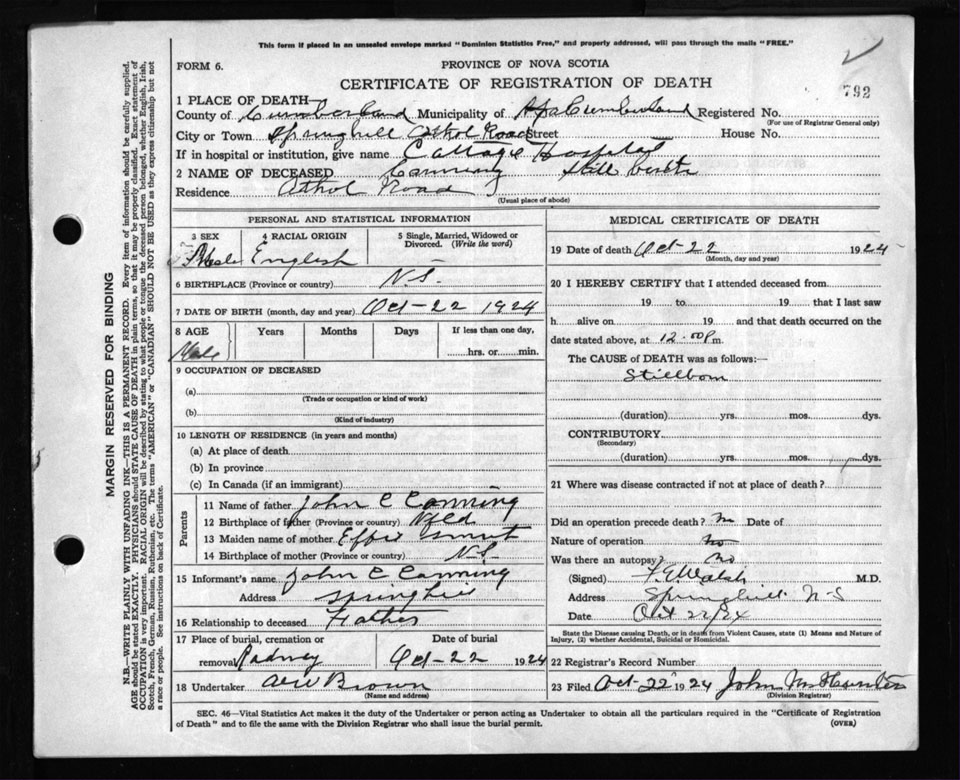 This form if placed in an unsealed envelope marked "Dominion Statistics Free," and properly addressed, will pass through the mails "FREE."
FORM 6.
PROVINCE OF NOVA SCOTIA
CERTIFICATE OF REGISTRATION OF DEATH
792
1 PLACE OF DEATH—
County of Cumberland Municipality of Cumberland Registered No.
(For use of Registrar General only)
City or Town Springhill Athol Road Street House No.
If in hospital or institution, give name Cottage Hospital
2 NAME OF DECEASED Canning Still birth
Residence Athol Road
(Usual place of abode)
PERSONAL AND STATISTICAL INFORMATION
3 SEX
Male
4 RACIAL ORIGIN
English
5 Single, Married, Widowed or Divorced. (Write the word)
6 BIRTHPLACE (Province or country) N.S.
7 DATE OF BIRTH (month, day and year) Oct-22 1924
8 AGE Years Months Days If less than one day,
Male hrs. or min.
9 OCCUPATION OF DECEASED
(a)
(Trade or occupation or kind of work)
(b)
(Kind of industry)
10 LENGTH OF RESIDENCE (in years and months)
(a) At place of death
(b) In province
(c) In Canada (if an immigrant)
Parents
11 Name of father John C Canning
12 Birthplace of father (Province or country) Nfld
13 Maiden name of mother Effie
14 Birthplace of mother (Province or country) N.S
15 Informant's name John C Canning
Address Springhill
16 Relationship to deceased Father
17 Place of burial, cremation or removal Rodney
Date of burial Oct-22 1924
18 Undertaker Brown
(Name and address)
MEDICAL CERTIFICATE OF DEATH
19 Date of death Oct-22 1924
(Month, day and year)
20 I HEREBY CERTIFY that I attended deceased from
19 to 19 that I last saw
h alive on 19 and that death occurred on the
date stated above, at 12:00 P m.
The CAUSE OF DEATH was as follows:—
Stillborn
(duration) yrs. mos. dys.
CONTRIBUTORY
(Secondary)
(duration) yrs. mos. dys.
21 Where was disease contracted if not at place of death?
Did an operation precede death? no Date of
Nature of operation no
Was there an autopsy? no
(Signed) F. E. Walsh M.D.
Address Springhill N-S
Date Oct 22/24
State the Disease causing Death, or in death from Violent Causes, state (1) Means and Nature of Injury, (2) whether Accidental, Suicidal or Homicidal.
22 Registrar's Record Number
23 Filed Oct-22 1924 John
(Division Registrar)
SEC. 46—Vital Statistics Act makes it the duty of the Undertaker or person acting as Undertaker to obtain all the particulars required in the "Certificate of Registration
of Death" and to file the same with the Division Registrar who shall issue the burial permit.
(OVER)
MARGIN RESERVED FOR BINDING
N.B.—WRITE PLAINLY WITH UNFADING INK—THIS IS A PERMANENT RECORD. Every item of information should be carefully supplied.
AGE should be stated EXACTLY. PHYSICIANS should STATE CAUSE OF DEATH in plain terms, so that it may be properly classified. Exact statement of
OCCUPATION is very important. RACIAL ORIGIN will be described by stating to what people or tongue the deceased person belonged, whether English, Irish,
Scotch, French, German, Russian, Ruthenian, etc. The terms "AMERICAN" or "CANADIAN" SHOULD NOT BE USED as they express citizenship but not
a race or people. See instructions on back of Certificate.